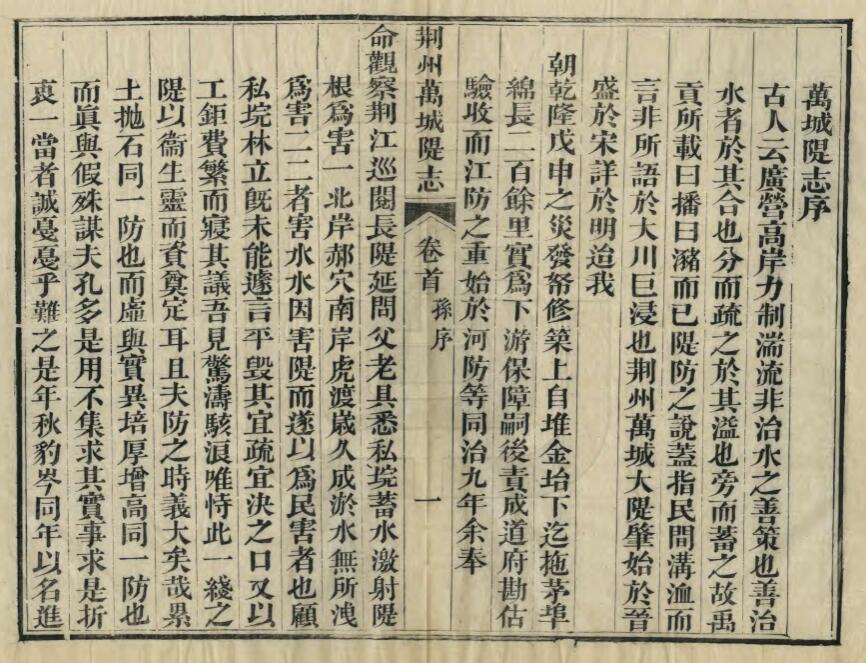 萬城隄志序
古人云廣營高岸力制湍流非治水之善策也善治
水者於其合也分而疏之於其溢也旁而蓄之故禹
貢所載曰播曰瀦而已隄防之說蓋指民間溝洫而
言非所語於大川巨浸也荆州萬城大隄肇始於晉
盛於宋詳於明迨我
朝乾隆戊申之災發帑修築上自堆金坮下迄拖茅埠
綿長二百餘里實爲下游保障嗣後責成道府勘估
驗收而江防之重始於河防等同治九年余奉
荆州萬城隄志
卷首
孫序
一
命觀察荆江巡閱長隄延問父老具悉私垸蓄水激射隄
根爲害一北岸郝穴南岸虎渡歲久成淤水無所洩
爲害二二者害水水因害隄而遂以爲民害者也顧
私垸林立旣未能遽言平毀其宜疏宜決之口又以
工鉅費繁而寢其議吾見驚濤駭浪唯恃此一綫之
隄以衞生靈而資奠定耳且夫防之時義大矣哉累
土抛石同一防也而虛與實異培厚增高同一防也
而眞與假殊謀夫孔多是用不集求其實事求是折
衷一當者誠戞戞乎難之是年秋豹岑同年以名進